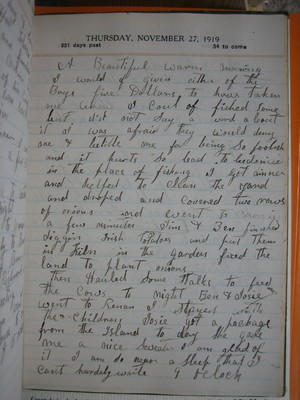 THURSDAY, NOVEMBER 27, 1919
331 days past 34 to come
A Beautiful warm morning
I would of given either of the
Boys five Dollars to have taken
me where I could of fished some
but did not say a word about
it as I was afraid they would deny
me & belittle me for being so foolish
and it hurts so bad to be denied
in the place of fishing I got dinner
and helped to clean the yard
and droped and covered two rows
of onions and went to
a few minutes Jim & Ben finished
diggin Irish Potatoes and put them
in Kiln in the garden fixed the
land to plant onions
then Hauled some stalks to feed
the Cows to night Ben & Josie
went to Kenan I stayed with
the Children Josie got a package
from the Island to day she gave
me a nice Sweater I am glad of
it I am so near a sleep that I
cant hardly write 9 OClock